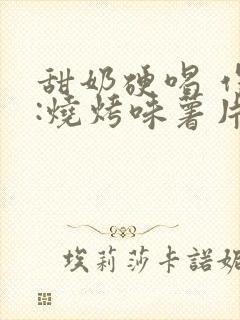 甜奶硬唱
:燒烤味薯片
埃莉莎卡諾妮